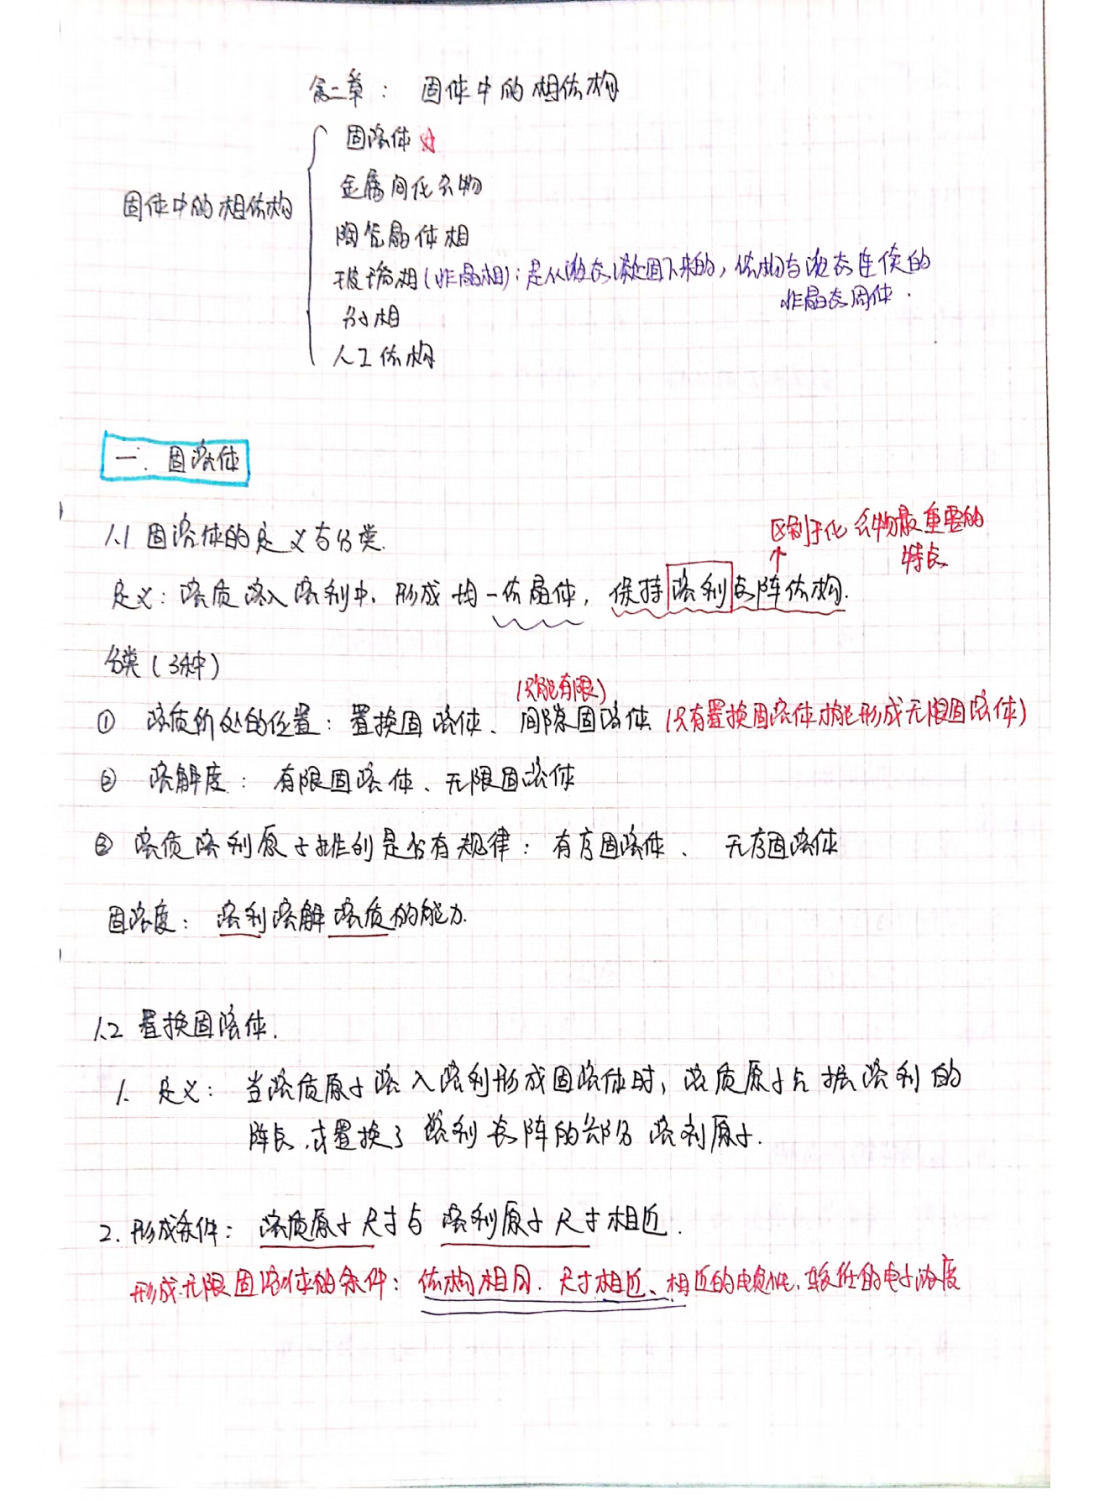 第二章： 固体中的相结构
固溶体
金属间化合物
固体中的相结构
陶瓷晶体相
玻璃相(非晶相)：是从液态凝固下来的，结构与液态连续的
非晶态固体．
分子相
人工结构
一． 固溶体
1.1 固溶体的定义与分类．
区别于化合物最重要的
特点
定义：溶质溶入溶剂中，形成均一结晶体，保持溶剂点阵结构．
分类(3种)
(只能有限)
① 溶质所处的位置：置换固溶体、间隙固溶体 (只有置换固溶体才能形成无限固溶体)
② 溶解度： 有限固溶体、无限固溶体
③ 溶质溶剂原子排列是否有规律：有序固溶体、 无序固溶体
固溶度：溶剂溶解溶质的能力．
1.2 置换固溶体．
1. 定义： 当溶质原子溶入溶剂形成固溶体时，溶质原子占据溶剂的
阵点，或置换了溶剂点阵的部分溶剂原子．
2. 形成条件：溶质原子尺寸与溶剂原子尺寸相近．
形成无限固溶体的条件：结构相同．尺寸相近、相近的电负性．较低的电子浓度